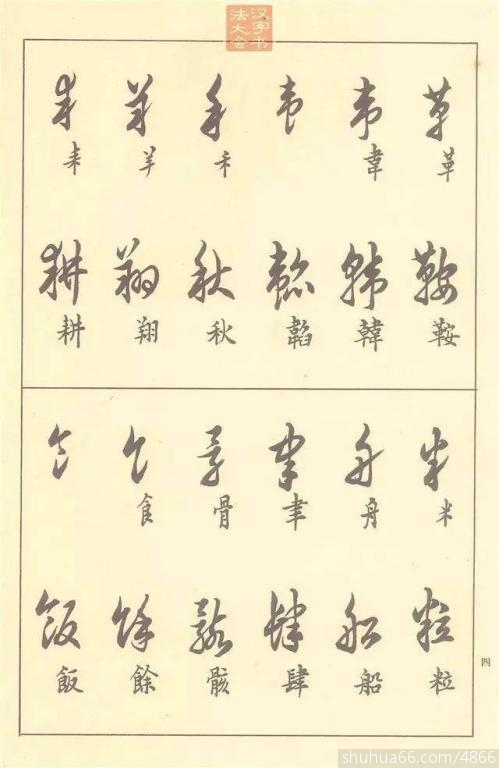 汉字书
法大会
革 韋 禾 羊 耒
鞍 韓 韜 秋 翔 耕
米 舟 聿 骨 飠
粒 船 肆 骸 餘 飯
四
shuhua66.com/4866